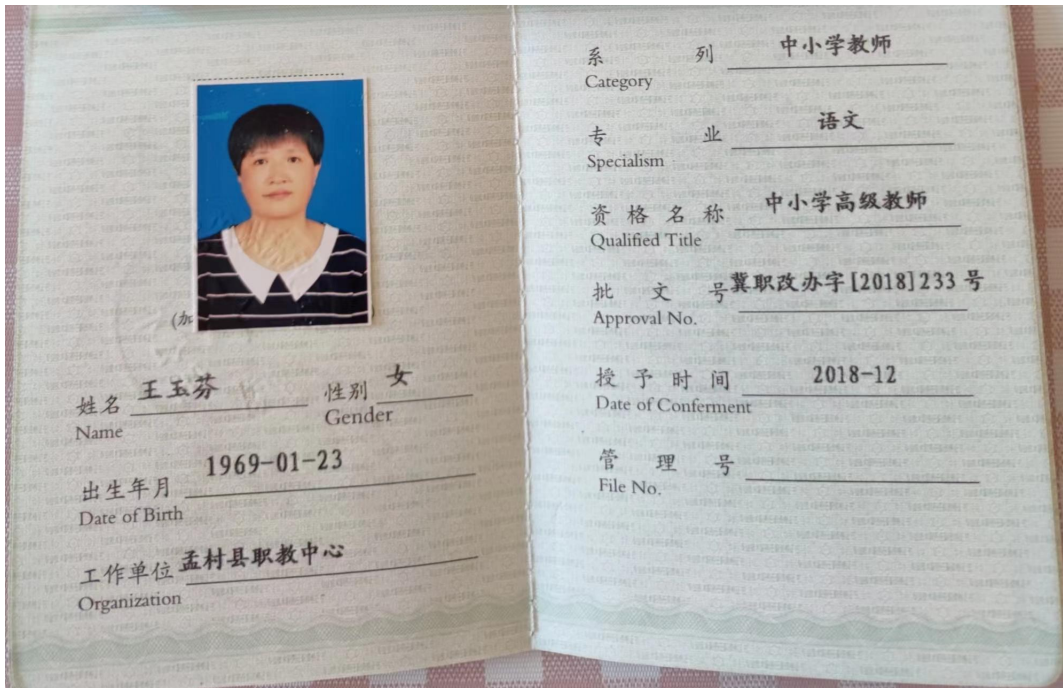 (加
姓名 王玉芬 性别 女
Name Gender
出生年月 1969-01-23
Date of Birth
工作单位 孟村县职教中心
Organization
系 列 中小学教师
Category
专 业 语文
Specialism
资格名称 中小学高级教师
Qualified Title
批 文 号 冀职改办字[2018]233 号
Approval No.
授予时间 2018-12
Date of Conferment
管 理 号
File No.